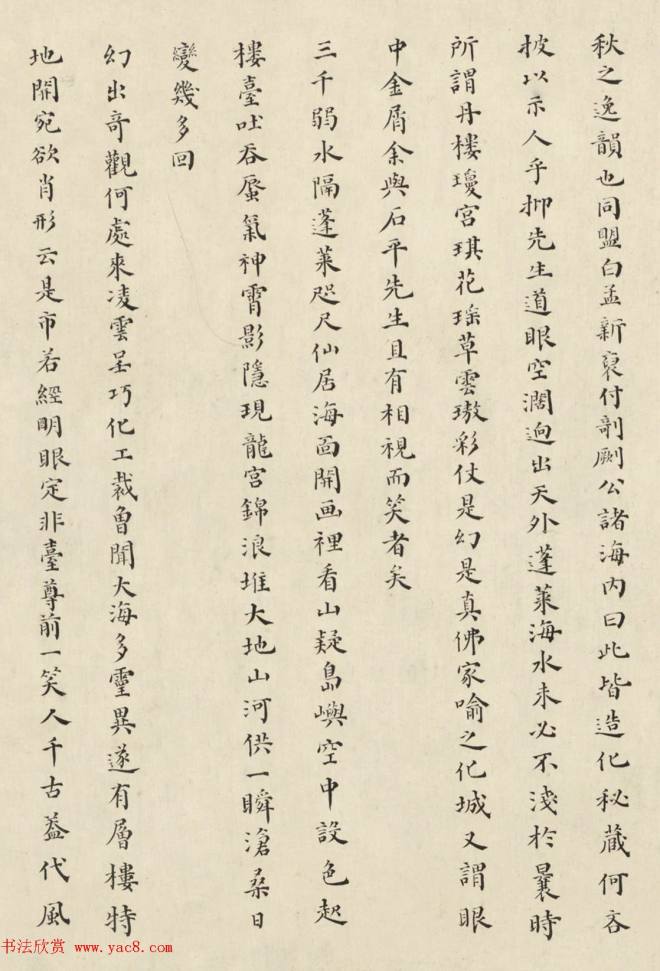 秋之逸韻也同盟白孟新裒付剞劂公諸海內曰此皆造化秘藏何吝
披以示人乎抑先生道眼空濶迥出天外蓬萊海水未必不淺於曩時
所謂丹樓瓊宮琪花瑶草雲璈彩仗是幻是真佛家喻之化城又謂眼
中金屑余與石平先生且有相視而笑者矣
三千弱水隔蓬萊咫尺仙居海面開画裡看山疑島嶼空中設色起
樓臺吐吞蜃氣神霄影隱現龍宮錦浪堆大地山河供一瞬滄桑日
變幾多回
幻出奇觀何處來凌雲呈巧化工裁曾聞大海多靈異遂有層樓特
地開宛欲肖形云是市若經明眼定非臺尊前一笑人千古蓋代風
书法欣赏 →www.yac8.com